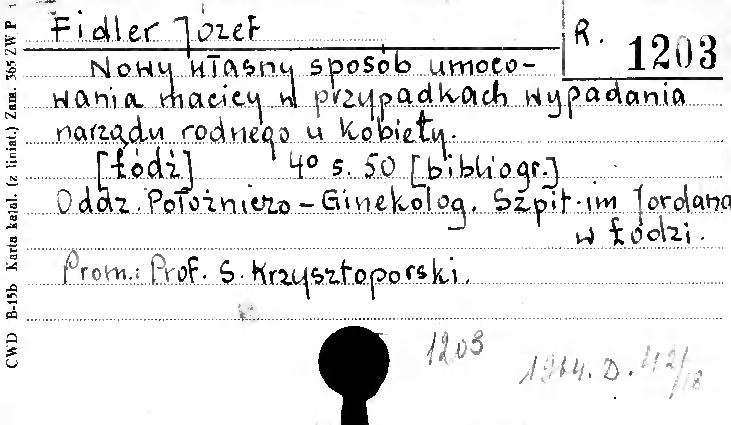 Fidler Józef
R. 1203
Nowy własny sposób umoco-
wania macicy w przypadkach wypadania
narządu rodnego u kobiety.
[Łódź] 4° s. 50 [bibliogr.]
Oddz. Położniczo-Ginekolog. Szpit. im Jordana
w Łodzi.
Prom.: Prof. S. Krzysztoporski.
1203
1964. D. 42/18
CWD B-15b Karta katal. (z liniat.) Zam. 365 ZWP 1